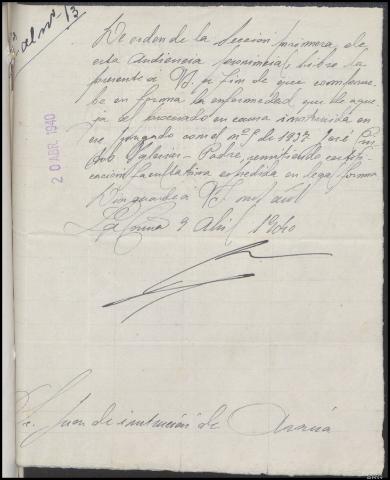 al nº 13
20 ABR. 1940
De orden de la Sección primera, de
esta Audiencia provincial, libro la
presente a V.I. a fin de que comprue-
be en forma la enfermedad que le aque-
ja al procesado en causa instruida en
ese Juzgado con el nº 9 de 1937 José
Iglesias - Padre, remitiendo certifi-
cación facultativa expedida en legal forma
Dios guarde a V.I. mu aº
La Coruña 9 Abril 1940
Sr. Juez de instrucción de Arzúa